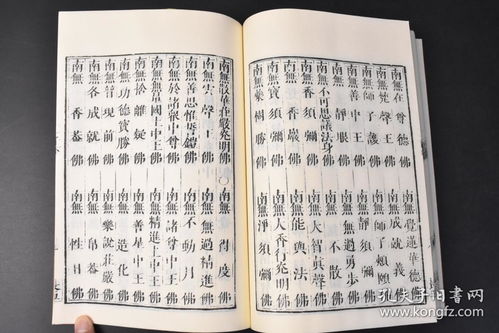 南無在尊德佛　南無覺蓮華德佛
南無梵聲王佛　南無成就義佛
南無師子護佛　南無師子頰頤佛
南無善中王佛　南無靜須彌佛
南無靜眼佛　南無無過勇步佛
南無不可思議法身佛　南無不散佛
南無寶須彌佛　南無大智真聲佛
南無香嚴佛　南無能與法佛
南無香須彌佛　南無大香行光明佛
南無藥樹勝佛　南無淨須彌佛
南無華莊嚴光明佛〇南無得度佛
南無雲聲王佛　南無無過精進佛
南無善思惟佛　南無不動月佛
南無於諸衆中尊佛　南無諸尊中王佛
南無無量國土中王佛　南無精進上中王佛
南無捨離疑佛　南無善星中王佛
南無功德寶勝佛　南無造化佛
南無智現前佛　南無樂說莊嚴佛
南無各成就佛　南無帛蓋佛
南無香蓋佛　南無性日佛
孔夫子旧书网
kongfz.com